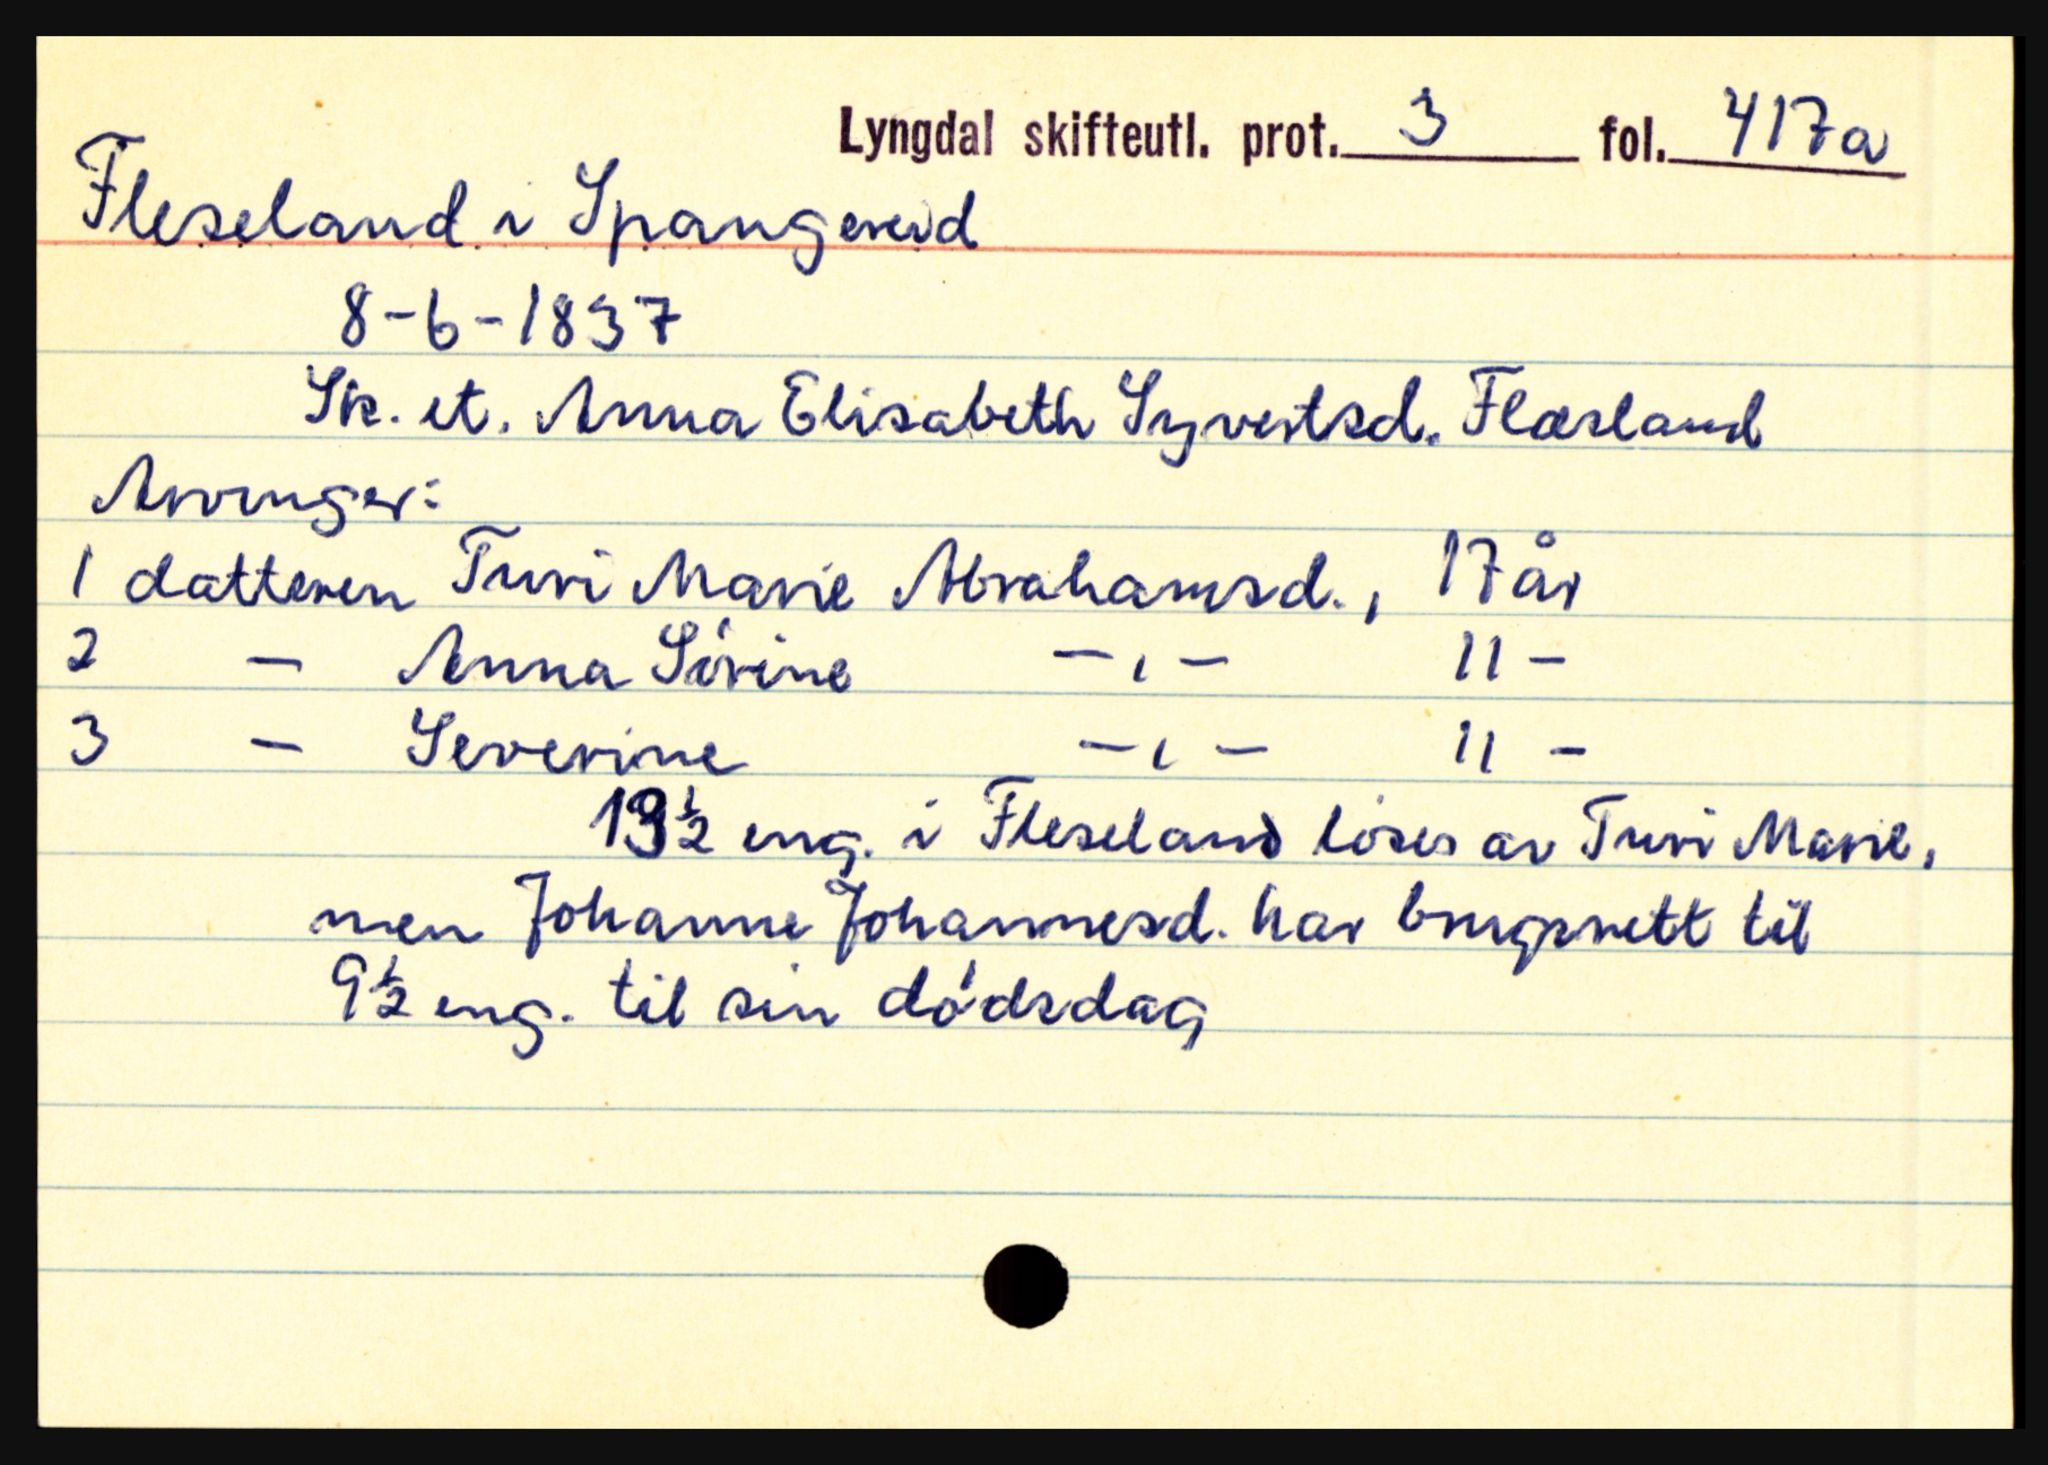 Lyngdal skifteutl. prot. 3 fol. 417a
Fleseland i Spangereid
8-6-1837
Sk. et. Anna Elisabeth Syvertsd. Flæsland
Arvinger:
1 datteren Turi Marie Abrahamsd., 17 år
2 — Anna Sørine — „ — 11 —
3 — Severine — „ — 11 —
13½ eng. i Fleseland løses av Turi Marie,
men Johanne Johannesd. har brugsrett til
9½ eng. til sin dødsdag